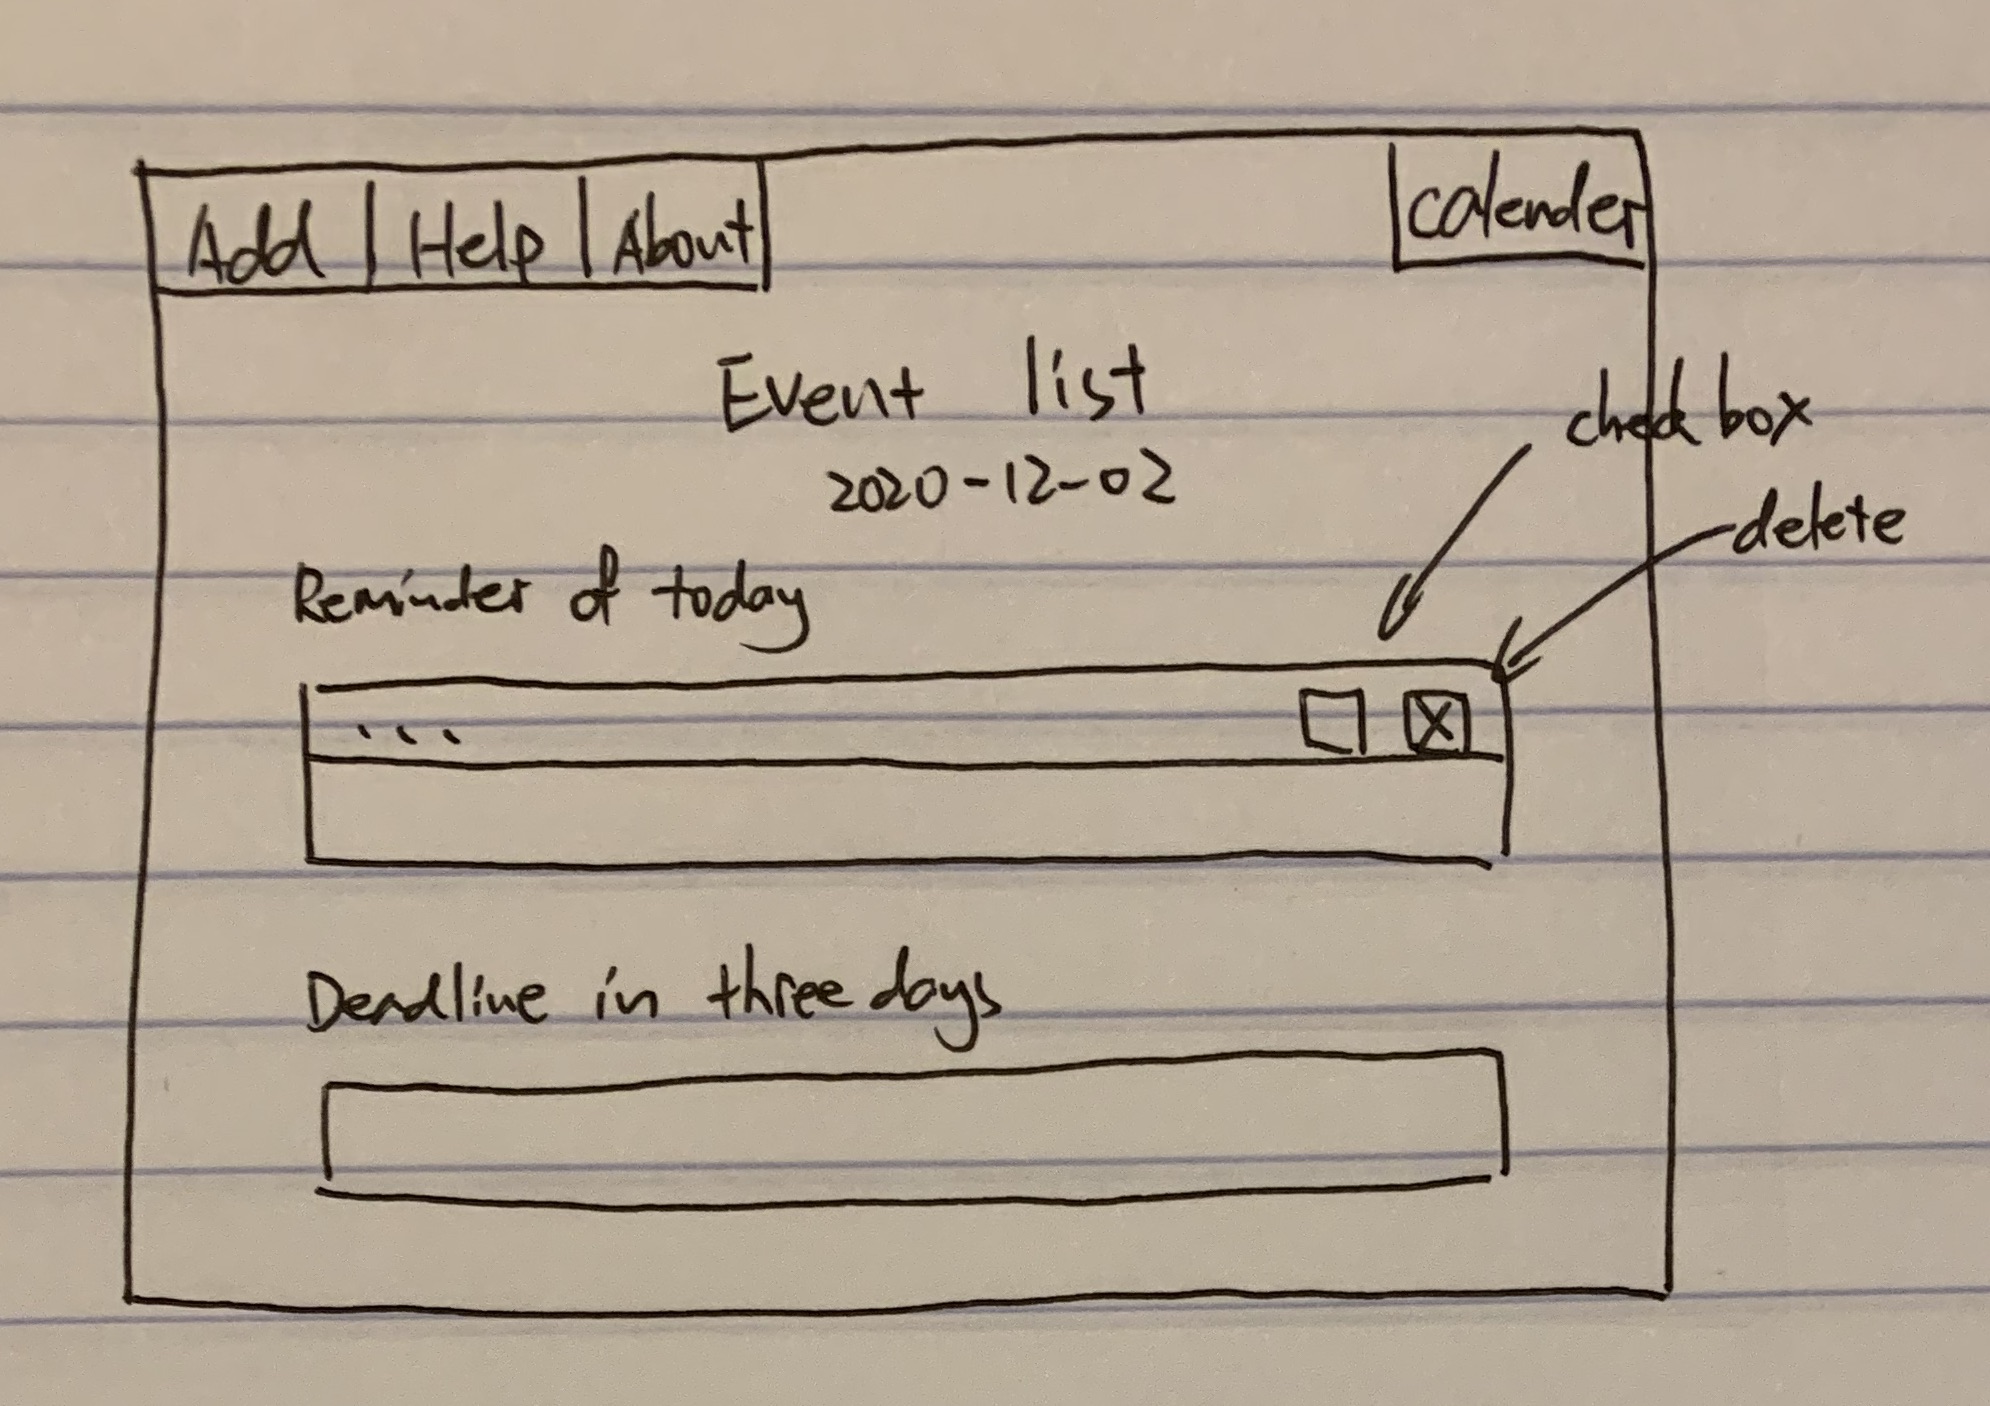 Add | Help | About calender
Event list
check box
2020-12-02
delete
Reminder of today
... X
Deadline in three days